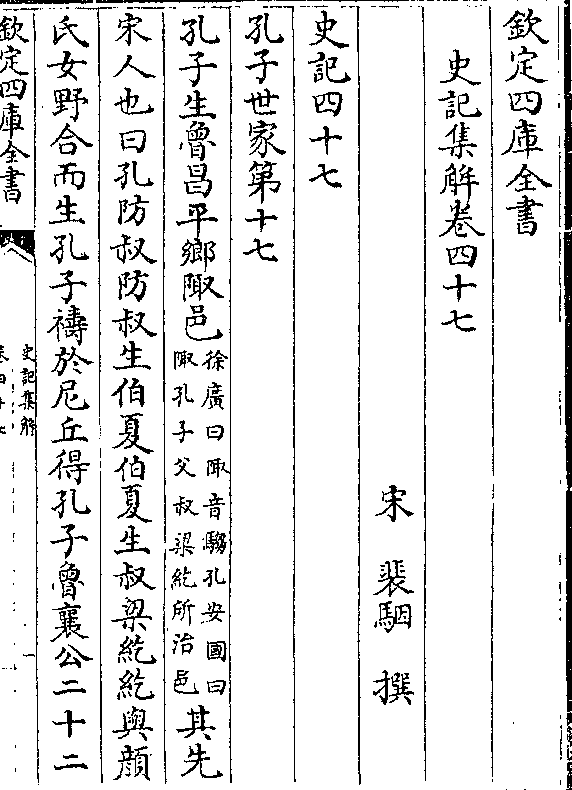 欽定四庫全書
史記集解卷四十七
宋 裴駰 撰
史記四十七
孔子世家第十七
孔子生魯昌平鄉陬邑
徐廣曰陬音騶孔安國曰
陬孔子父叔梁紇所治邑
其先
宋人也曰孔防叔防叔生伯夏伯夏生叔梁紇紇與顔
氏女野合而生孔子禱於尼丘得孔子魯襄公二十二
欽定四庫全書
史記集解
一